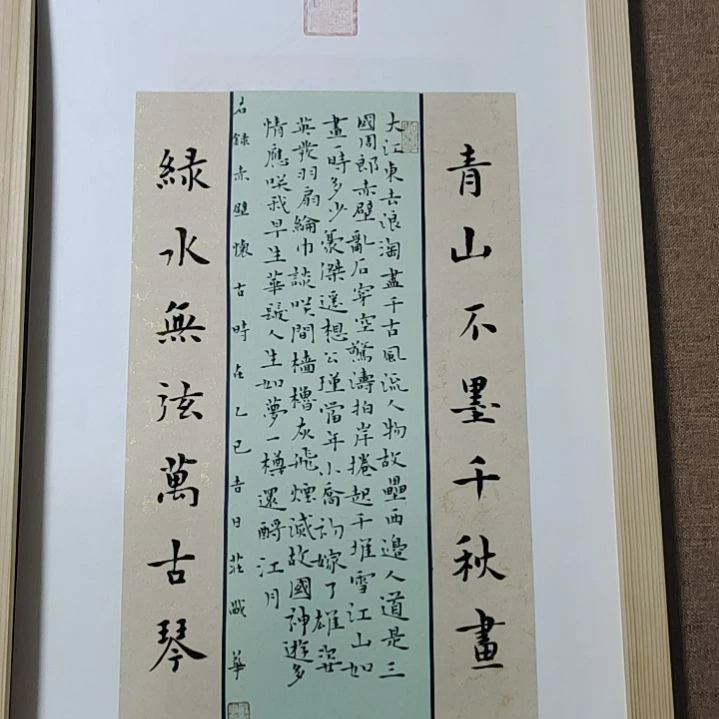 青山不墨千秋畫
大江東去浪淘盡千古風流人物故壘西邊人道是三
國周郎赤壁亂石穿空驚濤拍岸捲起千堆雪江山如
畫一時多少豪傑遥想公瑾當年小喬初嫁了雄姿
英發羽扇綸巾談咲間檣櫓灰飛煙滅故國神遊多
情應咲我早生華髮人生如夢一樽還酹江月
右録赤壁懷古時在乙巳吉日莊華
緑水無弦萬古琴